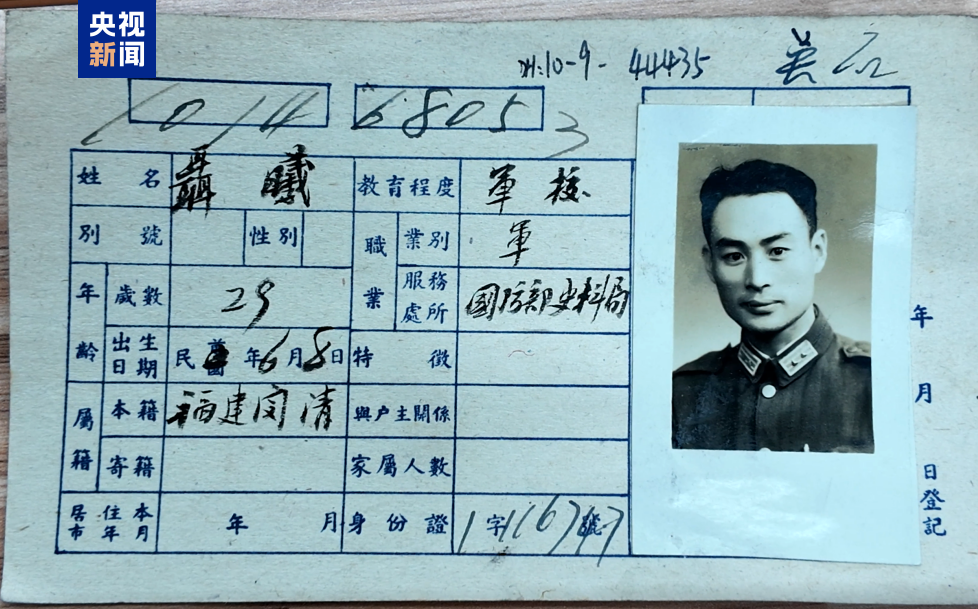 央视
新闻
10-9- 44435
1014 68053
姓名 聶曦 教育程度 軍校
別號 性別 職業 業別 軍
年齡 歲數 29 服務處所 國防部史料局
出生日期 民國 年6月8日 特徵
屬籍 本籍 福建闽清 與户主關係
寄籍 家屬人數
居住本市年月 年 月 身份證 字 號
年 月 日登記